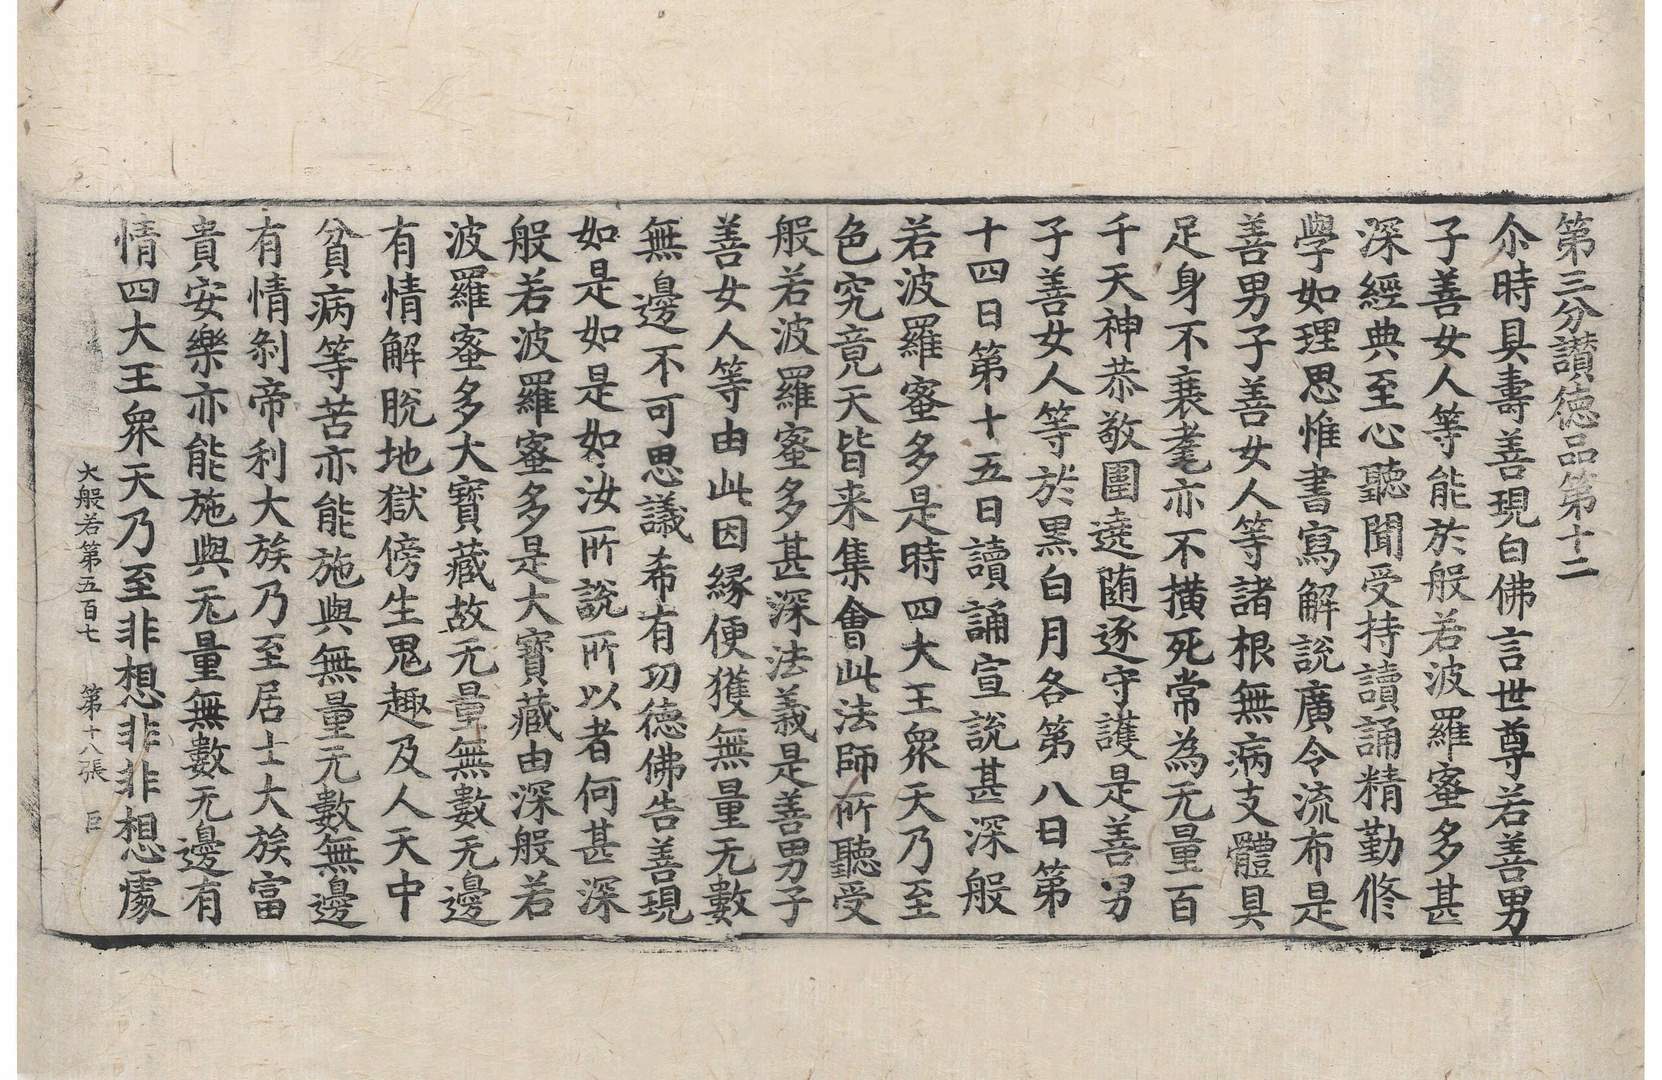 第三分讃徳品第十二
尒時具壽善現白佛言世尊若善男
子善女人等能於般若波羅蜜多甚
深經典至心聽聞受持讀誦精勤修
學如理思惟書寫解說廣令流布是
善男子善女人等諸根無病支體具
足身不衰耄亦不横死常為无量百
千天神恭敬圍遶随逐守護是善男
子善女人等於黒白月各第八日第
十四日第十五日讀誦宣說甚深般
若波羅蜜多是時四大王衆天乃至
色究竟天皆来集會此法師所聽受
般若波羅蜜多甚深法義是善男子
善女人等由此因縁便獲無量无數
無邊不可思議希有功德佛告善現
如是如是如汝所說所以者何甚深
般若波羅蜜多是大寶藏由深般若
波羅蜜多大寶藏故无量無數无邊
有情解脫地獄傍生鬼趣及人天中
貧病等苦亦能施與無量无數無邊
有情刹帝利大族乃至居士大族富
貴安樂亦能施與无量無數无邊有
情四大王衆天乃至非想非非想處
大般若第五百七 第十八張 巨